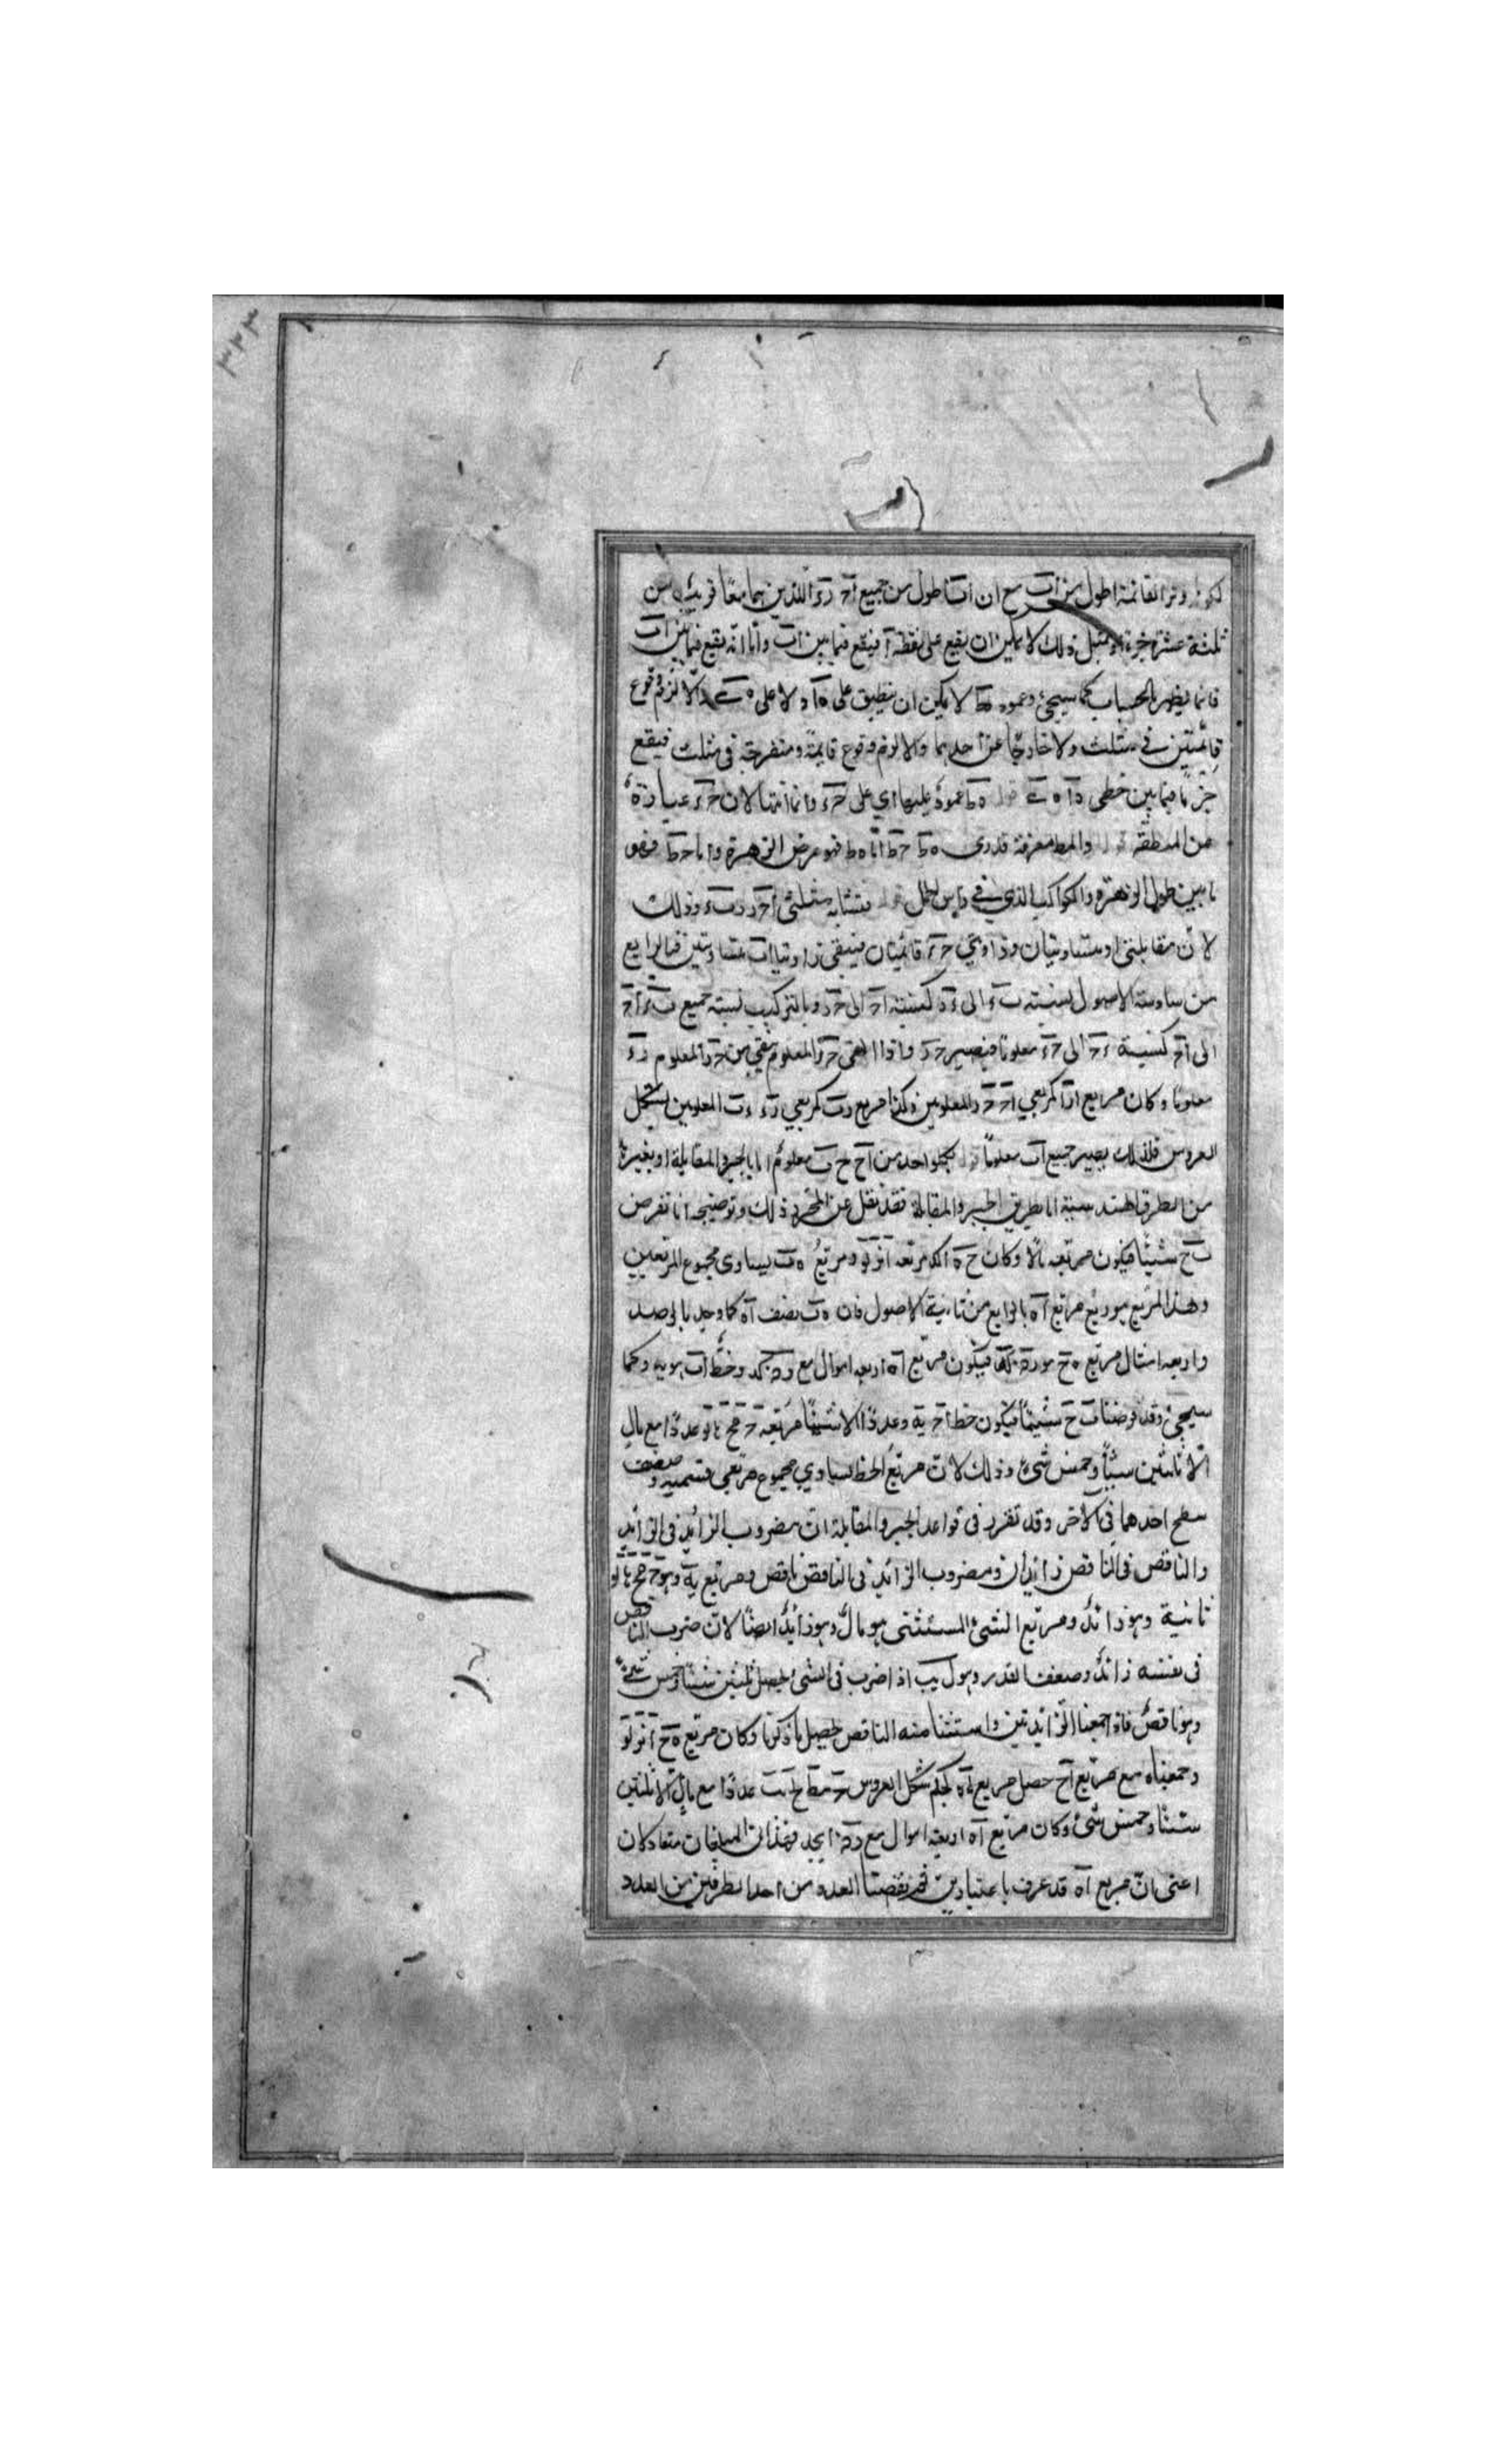 ٣٣٣
وتر القائمة اطول من اب مع ان اب اطول من جميع اح رء اللذين هما معا قريب من
ثلثة عشر جزءا مثل ذلك لا يمكن ان يقع على نقطة آ فيقع فيما بين اب واما انه يقع فيما بين اب
فانما يظهر بالحساب كما سيجئ وعمود هط لا يمكن ان ينطبق على ه آ ولا على ه والا لزم وقوع
قائمتين في مثلث ولا خارجا عن احدهما والا لزم وقوع قائمة ومنفرجة في مثلث فيقع
فيما بين خطى ه عمود عليها اي على حء وانما لان حء عبارة
من المنطقة والمط معرفة قدرى ه ط حط اما ه ط فهو عرض الزهرة واما حط فهو
ما بين طول الزهرة والكواكب الذي في راس الحمل فتشابه مثلثى احر رب ء وذلك
لان متقابلتى ر متساويتان وزاويتي ح ء قائمتان فيبقى زاويتا اب متساويتين فبالرابع
من سادسة الاصول نسبة ب ء الى ء ر كنسبة اح الى ح ر وبالتركيب نسبة جميع ب ء اح
الى اح كنسبة ء ح الى ح ر معلوما فيصير ح ر واذا القى ح ر المعلوم بقى من ح ء المعلوم ر ء
معلوما وكان مربع ار كمربعي اح ح ر المعلومين وكذا مربع رب كمربعي رء ء ب المعلومين بشكل
العروس فلذلك يصير جميع اب معلوما فكل واحد من اح ح ب معلوم اما بالجبر والمقابلة او بغيره
من الطرق الهندسية اما بطريق الجبر والمقابلة فقد نقل عن المحرر ذلك وتوضيحه انا نفرض
ب ح شيئا فيكون مربعه مالا وكان ح ه مربعه ومربع ه ب يساوى مجموع المربعين
وهذا المربع هو ربع مربع اه بالرابع من ثانية الاصول فان ه ب نصف اه كما وجد بالرصد
واربعة امثال مربع ه ح هو فيكون مربع اه اربعة اموال مع وخط اب هو يه وكما
سيجئ وقد فرضنا ب ح شيئا فيكون خط اح يه وعددا الا شيئا مربعه عددا مع مال
الا ثلثين شيئا وخمس شئ وذلك لان مربع الخط يساوي مجموع مربعي قسميه وضعف
سطح احدهما في الآخر وقد تقرر في قواعد الجبر والمقابلة ان مضروب الزائد في الزائد
والناقص في الناقص زائدان ومضروب الزائد في الناقص ناقص ومربع يه وهو
ثانية وهو زائد ومربع الشئ المستثنى هو مال وهو زائد ايضا لان ضرب الناقص
في نفسه زائد وضعف القدر وهو ل يب اذا ضرب في الشئ يحصل ثلثين شيئا وخمس شئ
وهو ناقص فاذا جمعنا الزائدتين واستثنا منه الناقص يحصل ما ذكرنا وكان مربع ه ح
وجمعناه مع مربع اح حصل مربع اه بحكم شكل العروس عددا مع مال الا ثلثين
شيئا وخمس شئ وكان مربع اه اربعة اموال مع فهذان المبلغان متعادلان
اعنى ان مربع اه قد عرف باعتبارين ثم نقصنا العدد من احد الطرفين من العدد